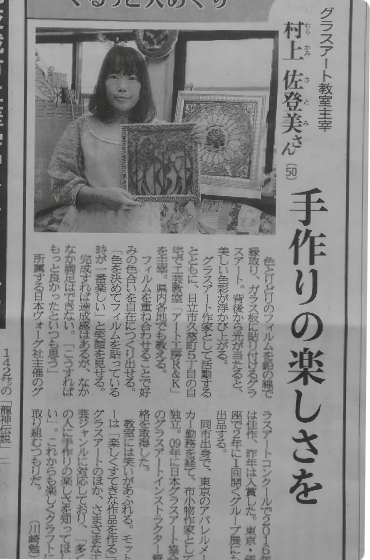 ぐるっと人めぐり
グラスアート教室主宰
村上 佐登美さん(50)
むらかみ さとみ
手作りの楽しさを
色とりどりのフィルムを鉛の線で
縁取り、ガラス板に貼り付けるグラ
スアート。背後から光が当たると、
美しい色彩が浮かび上がる。
グラスアート作家として活動する
とともに、日立市久慈町5丁目の自
宅で工芸教室「アート工房R&K」
を主宰。県内各地でも教える。
フィルムを重ね合わせることで好
みの色合いを自在につくり出せる。
「色を決めてフィルムを貼っている
時が一番楽しい」と笑顔を見せる。
完成すれば達成感はあるが、なか
なか満足はできない。「こうすれば
もっと良かったといつも思う」
所属する日本ヴォーグ社主催のグ
ラスアートコンクールで2016年
は佳作、昨年は入賞した。東京・銀
座で2年に1回開くグループ展にも
出品する。
同市出身で、東京のアパレルメー
カー勤務などを経て、布小物作家として
独立。09年に日本グラスアート協会
のグラスアートインストラクター資
格を取得した。
教室には笑いがあふれる。モットー
は「楽しくすてきな作品を作る」。
グラスアートのほか、さまざまな手
芸ジャンルに対応しており、「多く
の人に手作りの楽しさを知ってほし
い」。これからも楽しくクラフトに
取り組むつもりだ。
(川崎勉)
142㌻の「龍神伝説」